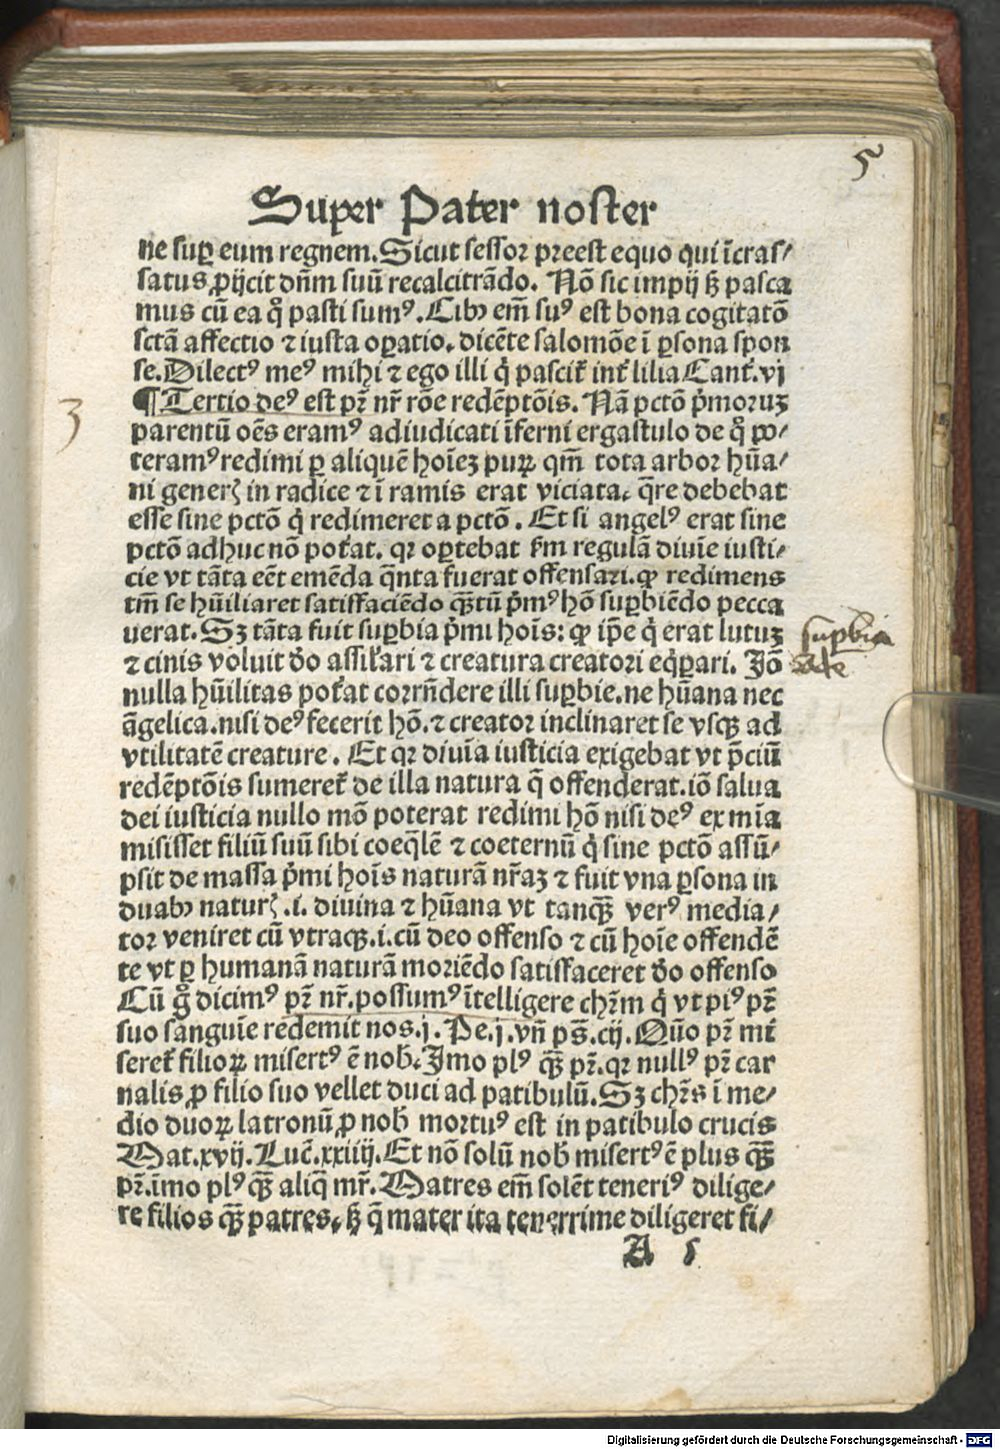 5
Super Pater noster
ne suꝑ eum regnem. Sicut sessor preest equo qui ĩcras/
satus ꝓijcit dñm suũ recalcitrãdo. Nõ sic impij sꝫ pasca
mus cũ ea q̊ pasti sumꝰ. Cibꝰ em̃ suꝰ est bona cogitatõ
sctã affectio ⁊ iusta oꝑatio. dicẽte salomõe ĩ ꝑsona spon
se. Dilectꝰ meꝰ mihi ⁊ ego illi q̇ pascit̃ int̃ lilia Cant̃. vj
¶ Tertio deꝰ est pr̃ nr̃ rõe redẽptõis. Nã pctõ p̃moruꝫ
3
parentũ oẽs eramꝰ adiudicati ĩferni ergastulo de q̊ po/
teramꝰ redimi ꝑ aliquẽ hoĩeꝫ puꝝ qm̃ tota arbor hũa/
ni generꝭ in radice ⁊ ĩ ramis erat viciata. q̃re debebat
esse sine pctõ q̇ redimeret a pctõ. Et si angelꝰ erat sine
pctõ adhuc nõ pot̃at. qꝛ oꝑtebat s̃m regulã diuĩe iusti/
cie vt tãta eẽt emẽda q̃nta fuerat offensa ꝛi. ꝙ redimens
tm̃ se hũiliaret satisfaciẽdo qꝫtũ p̃mꝰ hõ suꝑbiẽdo pecca
uerat. Sꝫ tãta fuit suꝑbia p̃mi hoĩs: ꝙ ip̃e q̇ erat lutuꝫ
suꝑbia
Ade
⁊ cinis voluit dõ assil̃ari ⁊ creatura creatori eq̃ꝑari. Jõ
nulla hũilitas pot̃at corrñdere illi suꝑbie. ne hũana nec
ãgelica. nisi deꝰ fecerit hõ. ⁊ creator inclinaret se vsqꝫ ad
vtilitatẽ creature. Et qꝛ diuĩa iusticia exigebat vt p̃ciũ
redẽptõis sumeret̃ de illa natura q̃ offenderat. iõ salua
dei iusticia nullo mõ poterat redimi hõ nisi deꝰ ex mĩa
misisset filiũ suũ sibi coeq̃lẽ ⁊ coeternũ q̇ sine pctõ assũ/
psit de massa p̃mi hoĩs naturã nr̃aꝫ ⁊ fuit vna ꝑsona in
duabꝰ naturꝭ .i. diuina ⁊ hũana vt tanqꝫ verꝰ media/
tor veniret cũ vtraqꝫ .i. cũ deo offenso ⁊ cũ hoĩe offendẽ
te vt ꝑ humanã naturã moriẽdo satisfaceret dõ offenso
Cũ g̊ dicimꝰ pr̃ nr̃. possumꝰ ĩtelligere chr̃m q̇ vt piꝰ pr̃
suo sanguĩe redemit nos. j. Pe. j. vñ ps̃. cij. Quõ pr̃ mi
seret̃ filioꝝ misertꝰ ẽ nob̃. Jmo plꝰ qꝫ pr̃. qꝛ nullꝰ pr̃ car
nalis ꝓ filio suo vellet duci ad patibulũ. Sꝫ chr̃s ĩ me/
dio duoꝝ latronũ ꝓ nob̃ mortuꝰ est in patibulo crucis
Mat. xvij. Luc̃. xxiiij. Et nõ solũ nob̃ misertꝰ ẽ plus qꝫ
pr̃. ĩmo plꝰ qꝫ aliq̃ mr̃. Matres em̃ solẽt teneriꝰ dilige/
re filios qꝫ patres, sꝫ q̃ mater ita tenerrime diligeret fi/
A 5
Digitalisierung gefördert durch die Deutsche Forschungsgemeinschaft - DFG